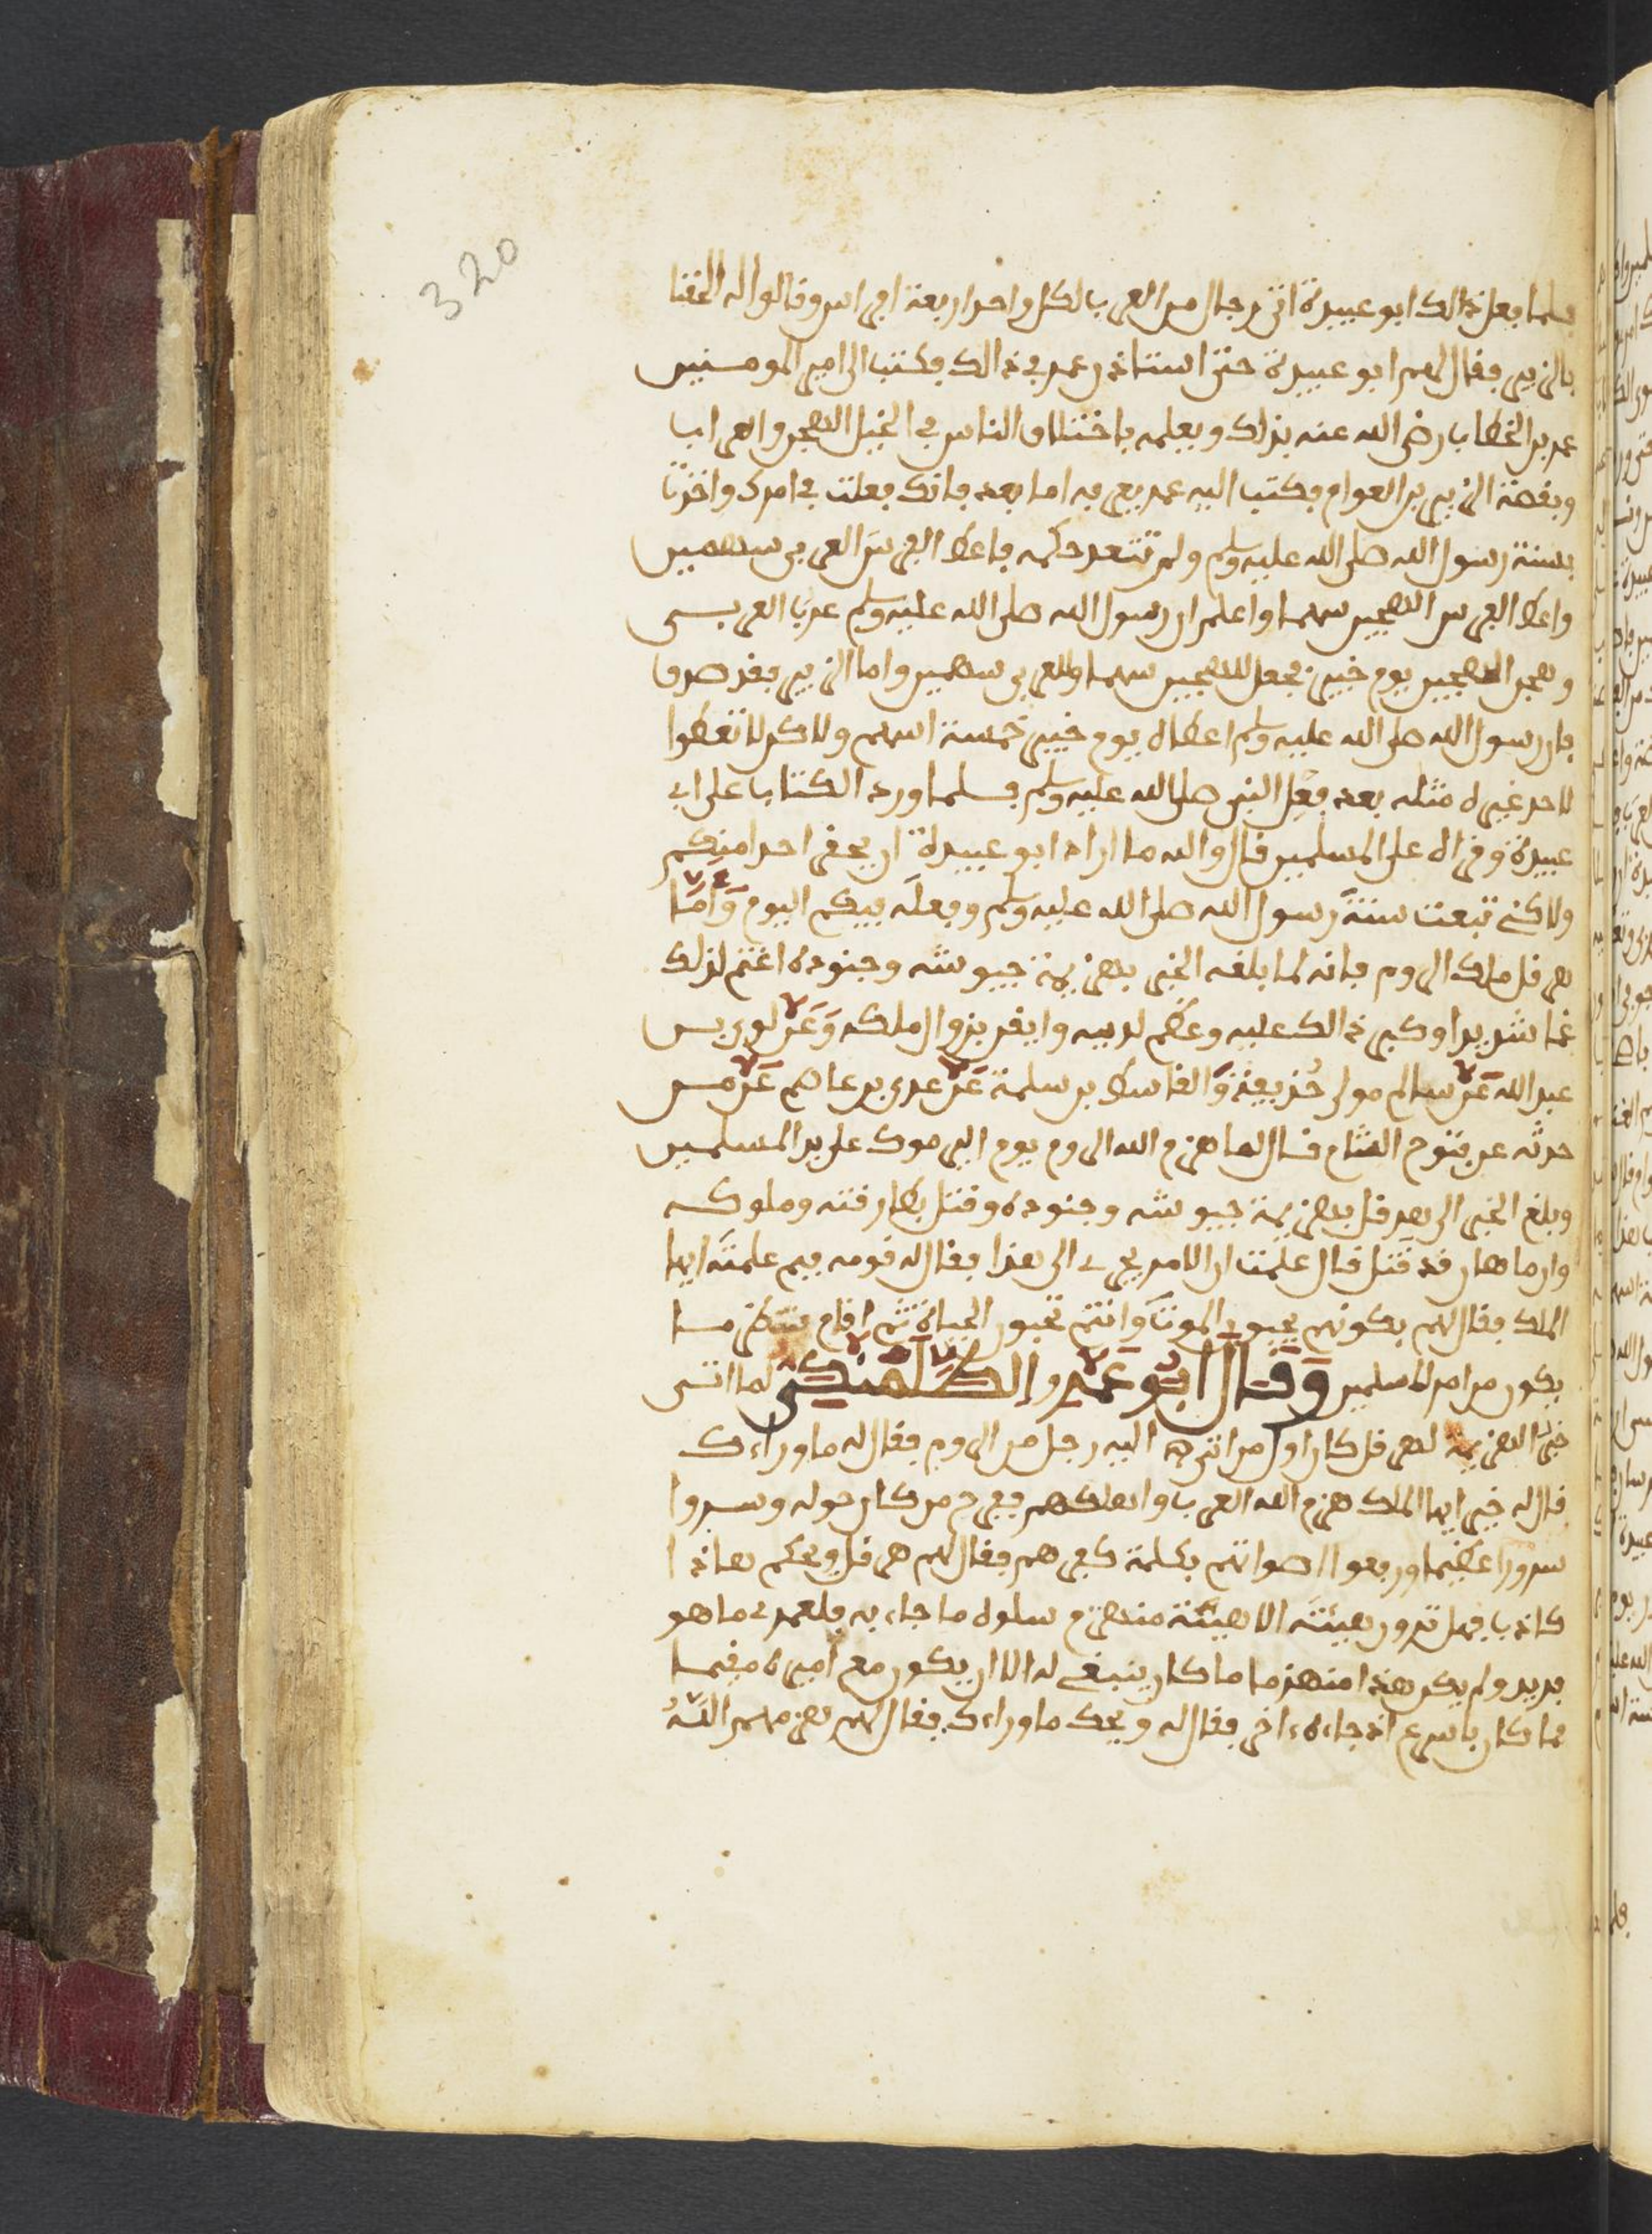 320
فلما فعل ذالك ابو عبيدة اتى رجال من العرب لكل واحد اربعة افراس وقالوا له الحقنا
بالزبير فقال لهم ابو عبيدة حتى استاذن عمر في ذالك فكتب الى امير المومنين
عمر بن الخطاب رضي الله عنه بذلك ويعلمه باختلاف الناس في الخيل الهجن والعراب
وبقصة الزبير بن العوام فكتب اليه عمر اما بعد فانك فعلت في امرك واخذت
بسنة رسول الله صلى الله عليه وسلم ولم تتعد حكمه فاعط الفرس العربي سهمين
واعط الفرس الهجين سهما واعلم ان رسول الله صلى الله عليه وسلم عرب العربي
وهجن الهجين يوم خيبر فجعل للهجين سهما وللعربي سهمين واما الزبير فقد صدق
فان رسول الله صلى الله عليه وسلم اعطاه يوم خيبر خمسة اسهم ولاكن لا تعطوا
لاحد غيره مثله بعد فعل النبي صلى الله عليه وسلم فلما ورد الكتاب على ابي
عبيدة وقراه على المسلمين قال والله ما اراد ابو عبيدة ان يحقر احدا منكم
ولاكني تبعت سنة رسول الله صلى الله عليه وسلم وفعله فيكم اليوم وَاَمَّا
هرقل ملك الروم فانه لما بلغه الخبر بهزيمة جيوشه وجنوده اغتم لذلك
غما شديدا وكبر ذالك عليه وعظم لديه وايقن بزوال ملكه وَعَنْ لوي بن
عبد الله عَنْ سالم مولى حُذيفة وَالقاسط بن سلمة عَنْ عدي بن عاصم عَنْ من
حدثه عن فتوح الشام قال لما هزم الله الروم يوم اليرموك على يد المسلمين
وبلغ الخبر الى هرقل بهزيمة جيوشه وجنوده وقتل بطارقته وملوكه
وان ماهان قد قُتل قال علمت ان الامر يجرى الى هذا فقال له قومه فيم علمته ايها
الملك فقال لهم بكونهم يحبون الموت وَانتم تحبون الحياة ثم اقام ينتظر ما
يكون من امر المسلمين وَقَالَ ابُو عَمْرو الطَّلَمَنْكي لما اتى
خبر الهزيمة لهرقل كان اول من انتهى اليه رجل من الروم فقال له ما وراءك
قال له خير ايها الملك هزم الله العرب واهلكهم ففرح من كان حوله وسروا
سرورا عظيما ورفعوا اصواتهم بكلمة كفرهم فقال لهم هرقل ويحكم هاذا
كاذب فهل ترون هيئته الا هيئة منهزم سلوه ما جاء به فلعمري ما هو
بريد ولم يكن هذا منهزما ما كان ينبغي له الا ان يكون مع اميره مقيما
فما كان باسرع اذ جاءه ءاخر فقال له ويحك ما وراءك فقال لهم هزمهم اللهُ